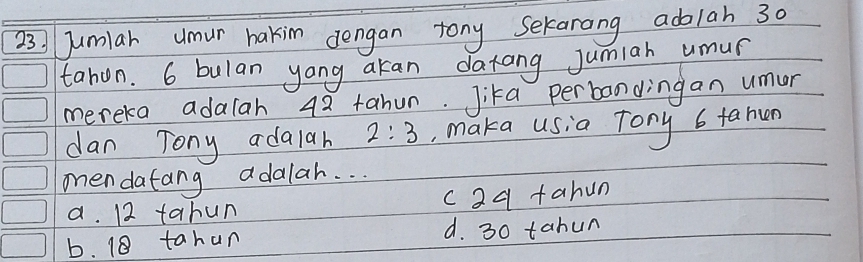 23. Jumlah umur hakim dengan tony Sekarang adalah 30
tahun. 6 bulan yang akan datang Jumlah umur
mereka adalah 42 tahun. Jika perbandingan umur
dan Tony adalah 2:3, maka usia Tony 6 tahun
mendatang adalah...
a. 12 tahun
c 24 tahun
b. 18 tahun
d. 30 tahun